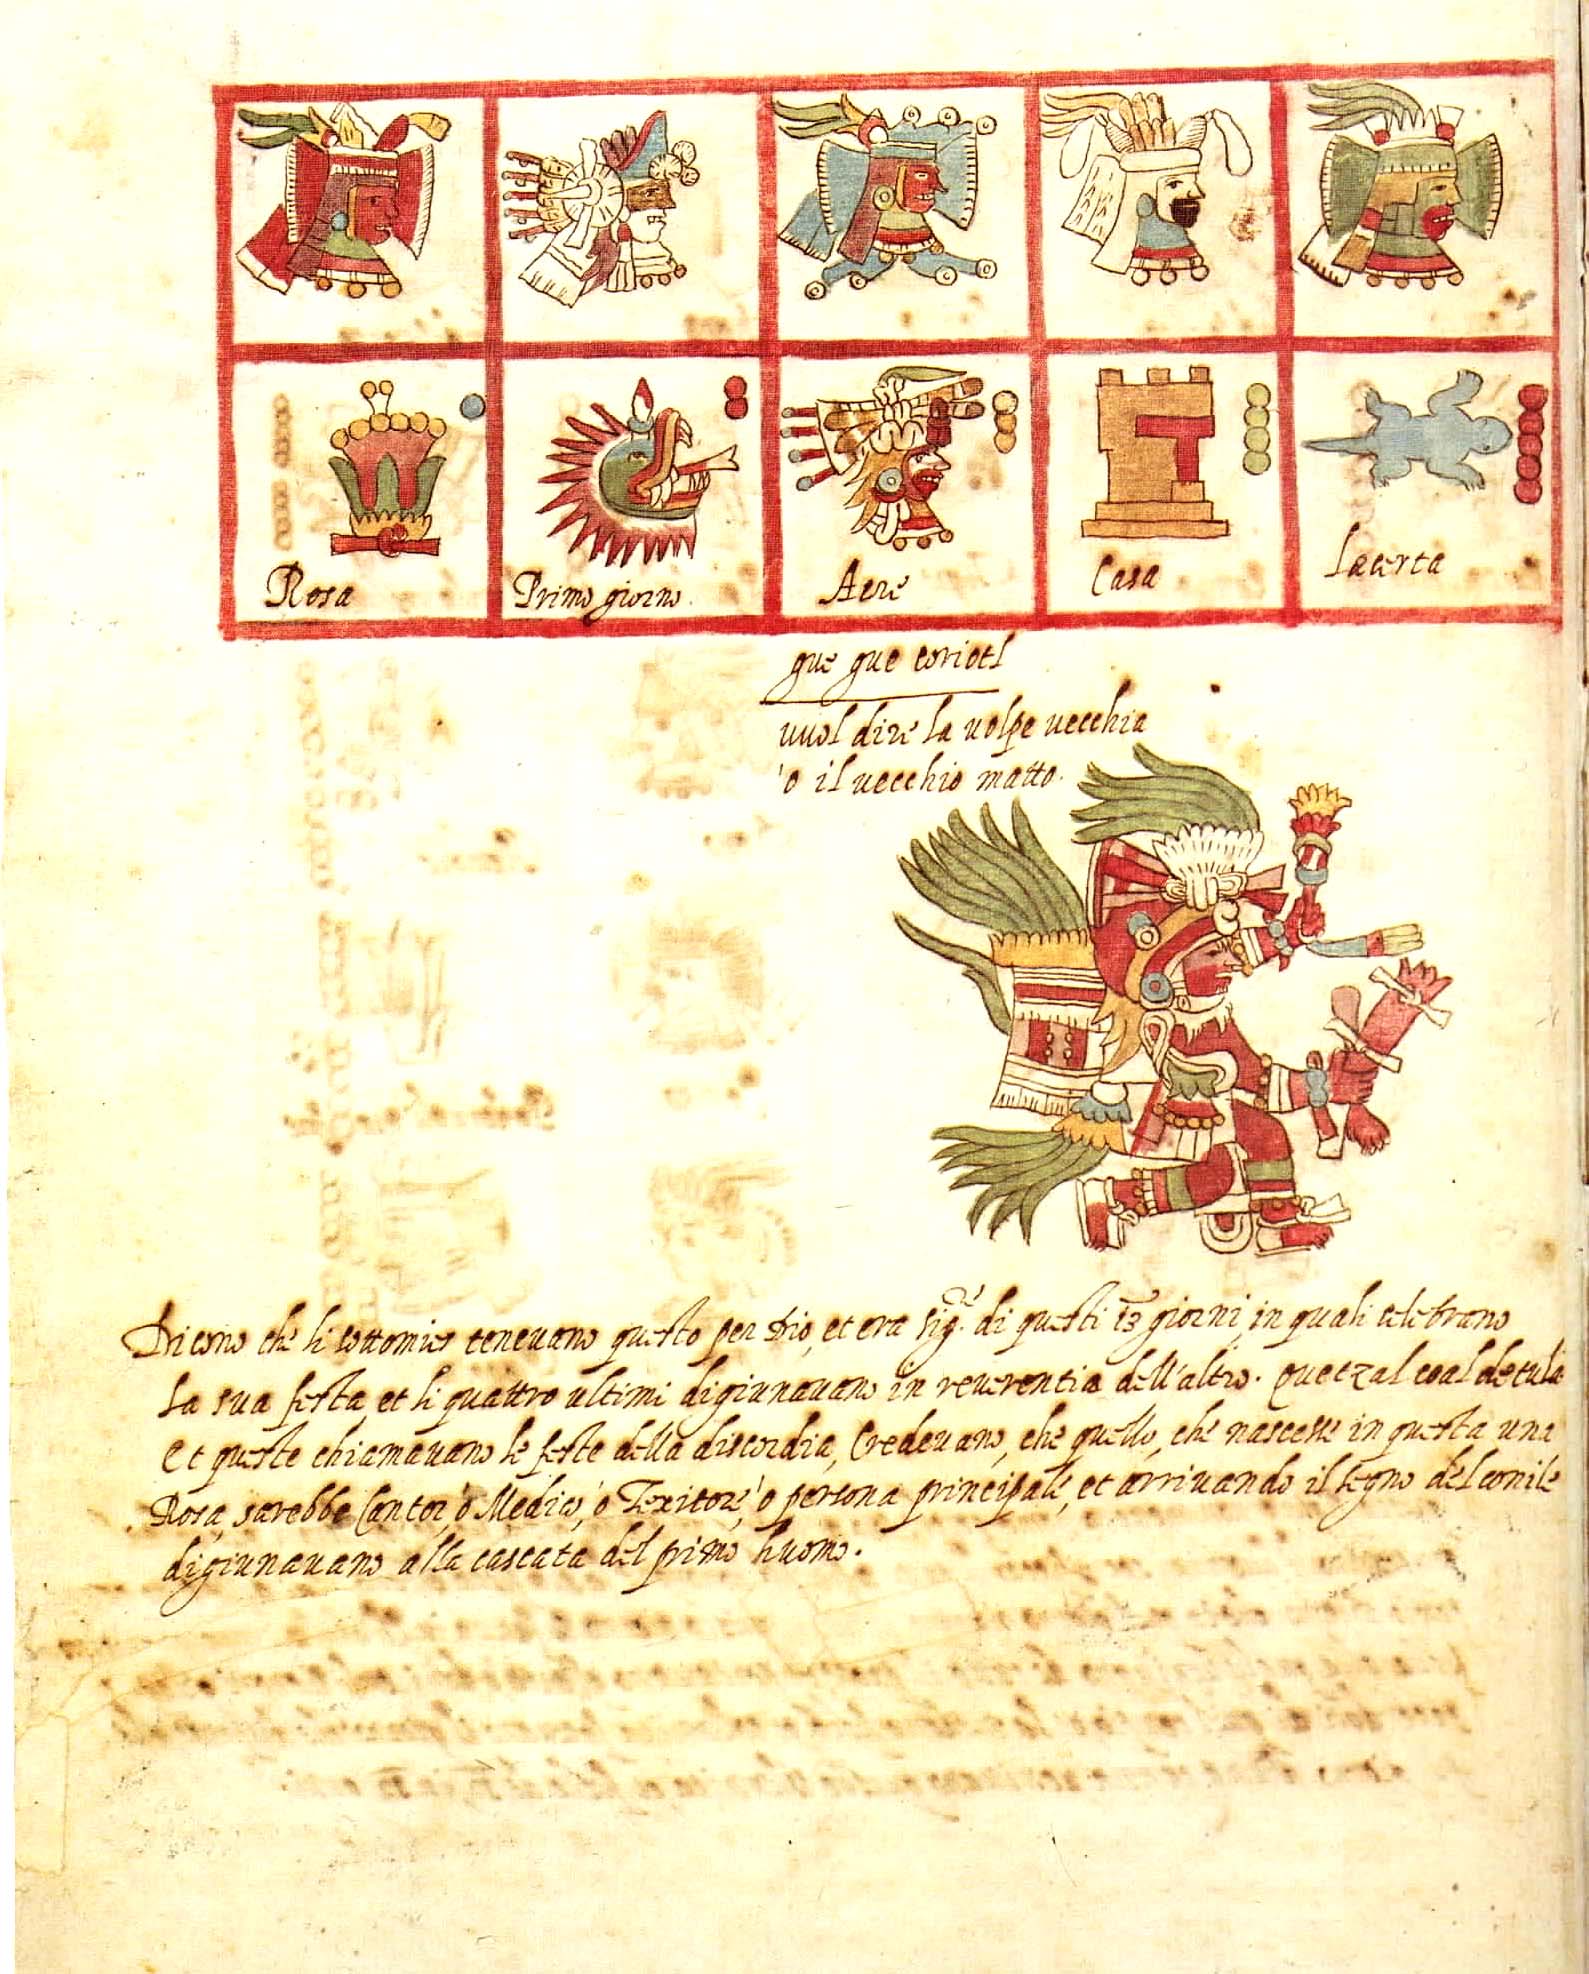 Rosa
Primo giorno.
Aere
Casa
Lacerta
gue gue coriotl
vuol dire la volpe vecchia
'o il vecchio matto.
Dicono che li ottomies tenevano questo per Dio, et era sig.re di questi 13 giorni, in quali celebrano
la sua festa, et li quattro ultimi digiunavano in reverentia dell'altro. Quetzalcoal de tula
Et queste chiamavano le feste della discordia, Credevano, che quello, che nascesse in questa una
Rosa, sarebbe Cantor, 'o Medico, 'o Texitore, 'o persona principale, et arrivando il segno del conile
digiunavano alla cascata del primo huomo.